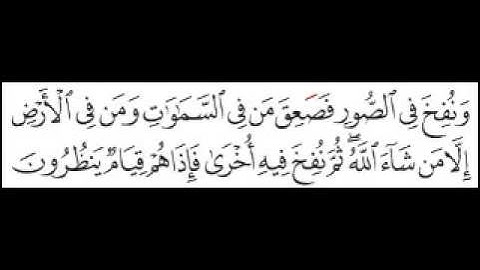 وَنُفِخَ فِي ٱلصُّورِ فَصَعِقَ مَن فِي ٱلسَّمَٰوَٰتِ وَمَن فِي ٱلْأَرْضِ
إِلَّا مَن شَآءَ ٱللَّهُ ۖ ثُمَّ نُفِخَ فِيهِ أُخْرَىٰ فَإِذَا هُمْ قِيَامٌ يَنظُرُونَ